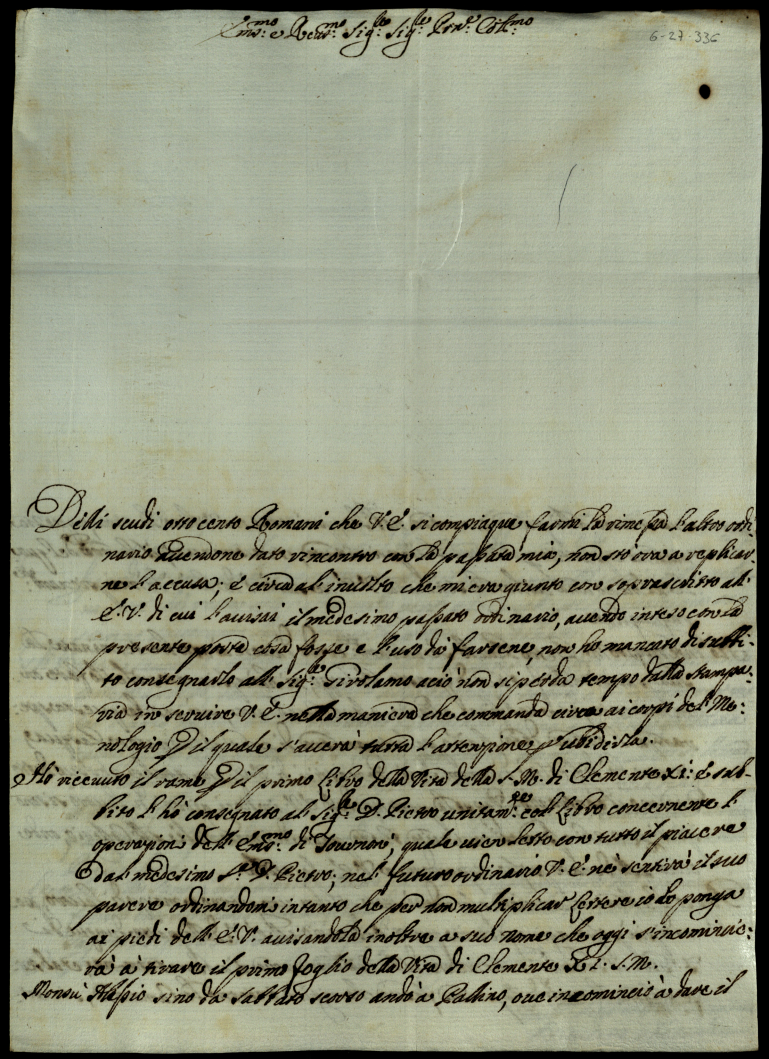 Em.mo e Reu.mo Sig.re Sig.re Pr̃on Col.mo
6-27-336
Delli scudi otto cento Romani che V.E. si compiaque farmi la rimessa l'altro ordi-
nario avendone dato rincontro con la passata mia, non sto ora a replicar-
ne l'accusa; e circa al' inuolto che mi era giunto con soprascritto all'
E.V. di cui l'auisai il medesimo passato ordinario, auendo inteso con la
presente posta cosa fosse e l'uso da farsene, non ho mancato di subbi-
to consegnarlo all Sig.re Girolamo aciò non si perda tempo dalla stampa-
ria in seruire V.E. nella maniera che commanda circa ai corpi del Me-
nologio p il quale s'auerà tutta l'attenzione p ubidirla.
Hò riceuuto il rame p il primo Libro della Vita della S.M. di Clemente XI: e sub-
bito l'hò consegnato al Sig.re D. Pietro unitam.te col Libro concernente l'
operazioni dell' Em.mo di Tournon, quale uien letto con tutto il piacere
dal medesimo S.r D. Pietro; nel futuro ordinario V.E. ne sentirà il suo
parere ordinandomi intanto che per non multiplicar lettere io lo ponga
ai piedi dell' E.V. auisandola inoltre a suo nome che oggi s'incomincie-
rà à tirare il primo foglio della Vita di Clemente XI. S.M.
Monsù Alasio sino da Sabbato scorso andò a Pallino, oue incominciò a dare il